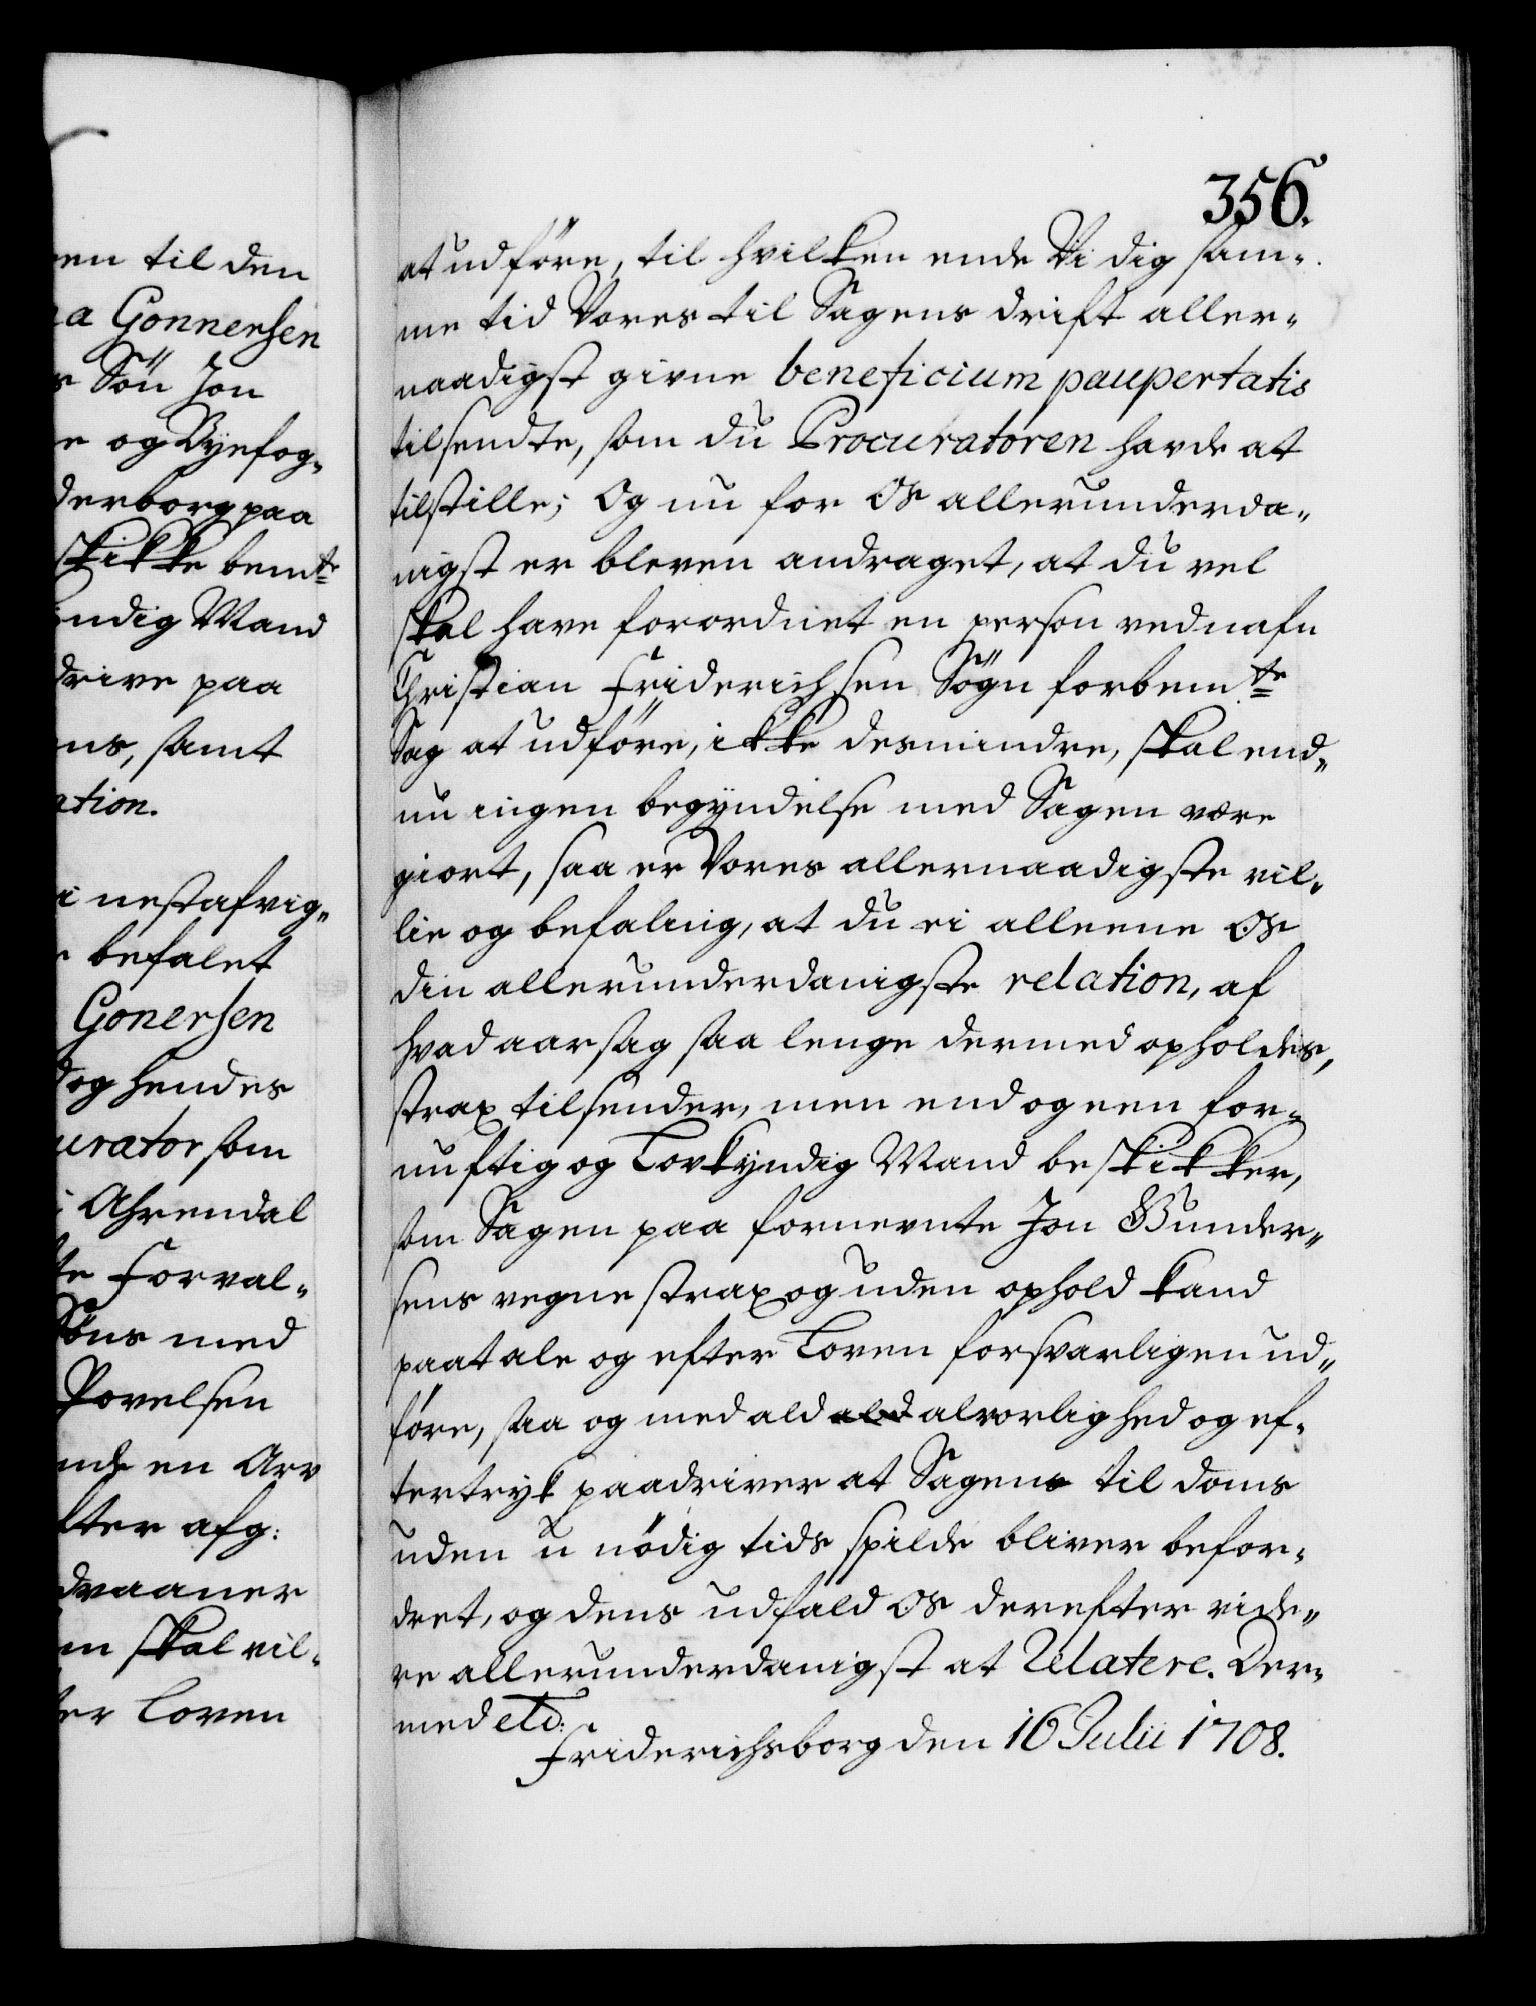 en til den
a Gonnersen
s Sön Jon
e og Byefog„
derborg paa
skikke bemte
ndig Mand
drive paa
ns, samt
ation.
i nestafvig„
e befalet
Gonersen
og hendes
urator som
i Ahrendal
te Forval„
Söns med
Povelsen
nde en Arv
fter afg:
dvaaner
m skal vil„
ter Loven
356.
at udföre, til hvilken ende Vi dig sam„
me tid Vores til Sagens drift aller„
naadigst givne beneficium paupertatis
tilsendte, som du Procuratoren havde at
tilstille; Og nu for Os allerunderda„
nigst er bleven andraget, at du vel
skal have forordnet en person ved nafn
Christian Friderichsen Sögn forbemte
Sag at udföre, ikke desmindre, skal end„
nu ingen begyndelse med Sagen være
giort, saa er Vores allernaadigste vil„
lie og befaling, at du ei alleene Os
din allerunderdanigste relation, af
hvad aarsag saa lenge dermed opholdes,
strax tilsender, men end og een for„
nuftig og Lovkyndig Mand beskikker,
som Sagen paa fornevnte Jon Gunder„
sens vegne strax og uden ophold kand
paatale og efter Loven forsvarligen ud„
före, saa og med ald ald alvorlighed og ef„
tertryk paadriver at Sagens til doms
uden u nödig tids spilde bliver befor„
dret, og dens udfald Os derefter vide„
re allerunderdanigst at Relatere. Der„
med etc:
Friderichsborg den 16 Julii 1708.